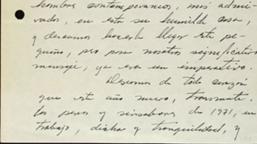 hombres contemporáneos, mis admi-
rados, en esta su humilde casa,
y deseamos hacerle llegar este pe-
queño, pero para nosotros significativo
mensaje, ya era un imperativo.
Deseamos de todo corazón
que este año nuevo, transmute
los pesos y sinsabores de 1971, en
trabajo, dicha y tranquilidad, y